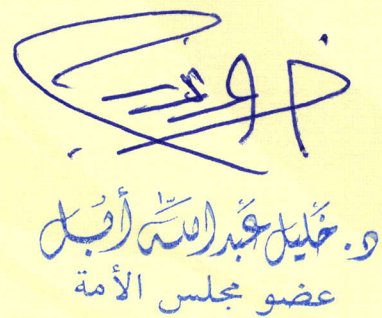 د. خليل عبدالله أبل
عضو مجلس الأمة